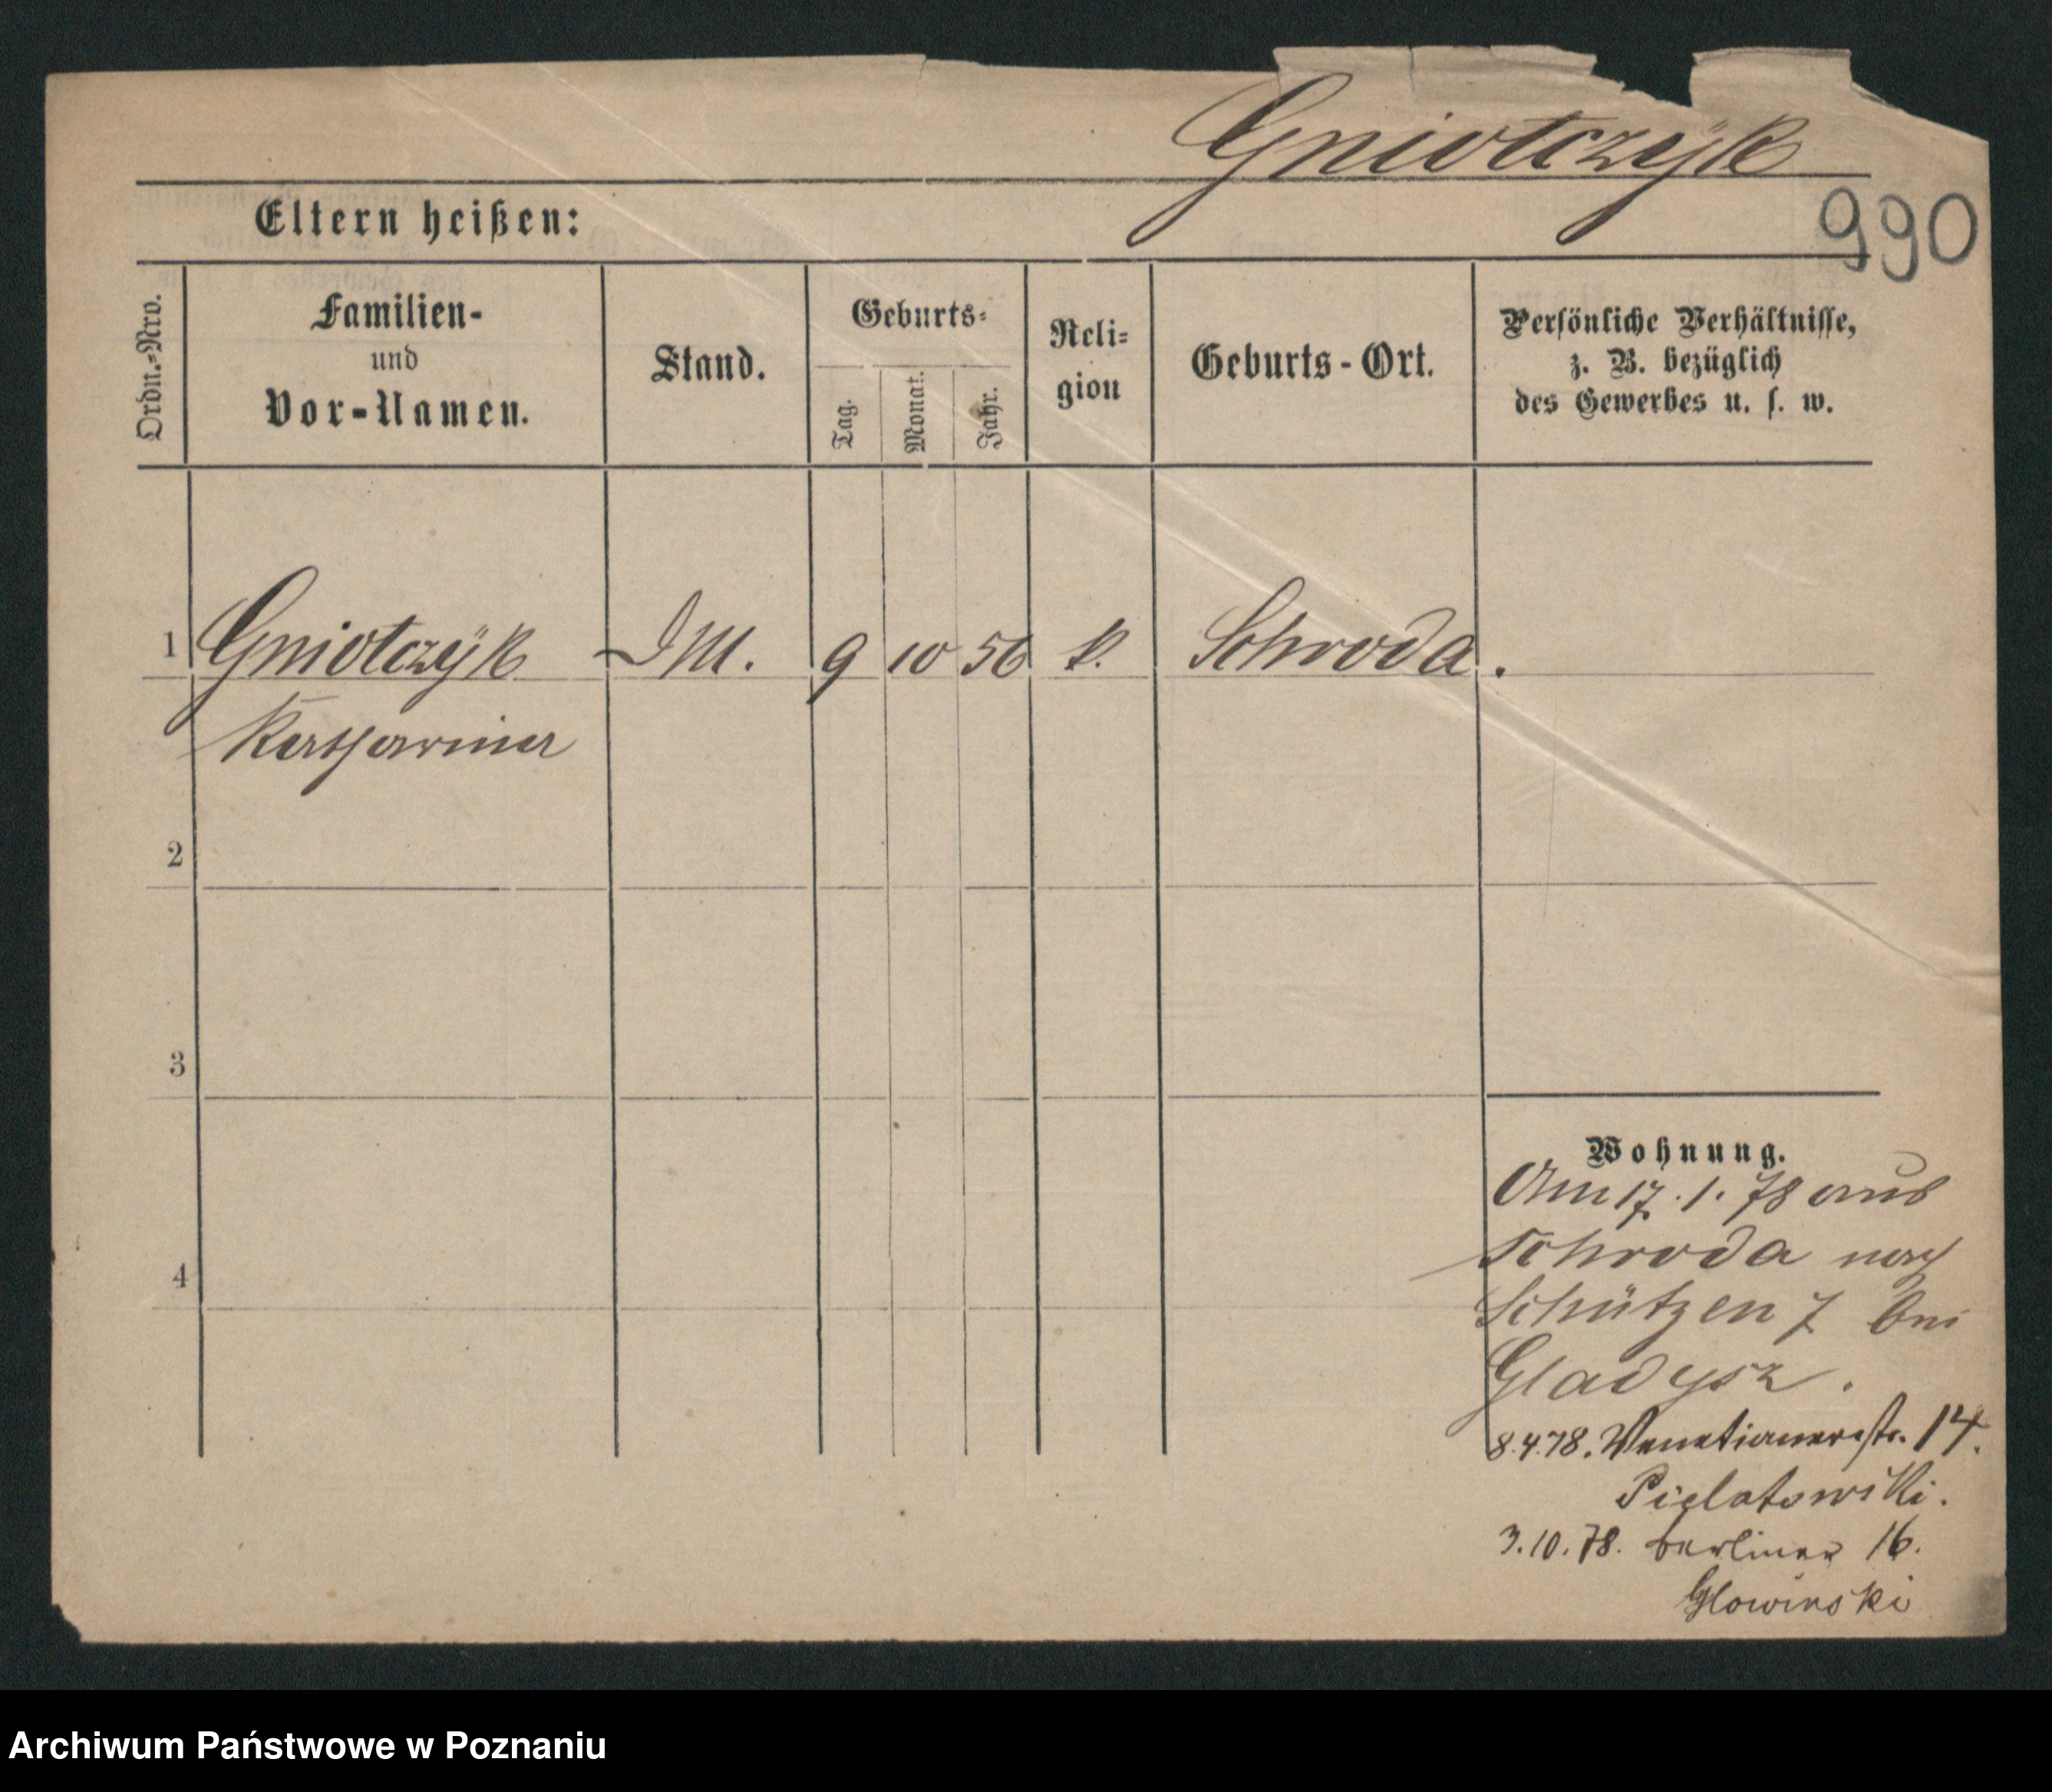 Gniotczÿk
990
Eltern heißen:
Ordn.-Nro.
Familien-
und
Vor-Namen.
Stand.
Geburts-
Tag.
Monat.
Jahr.
Reli-
gion
Geburts-Ort.
Persönliche Verhältnisse,
z. B. bezüglich
des Gewerbes u. s. w.
1 Gniotczÿk DM. 9 10 56 k. Schroda.
Katharina
2
3
4
Wohnung.
Am 17.1.78 aus
Schroda nach
Schützen 7 bei
Gladysz.
8.4.78. Venetianerstr. 14.
3.10.78. Berliner 16.
Glowinski
Archiwum Państwowe w Poznaniu